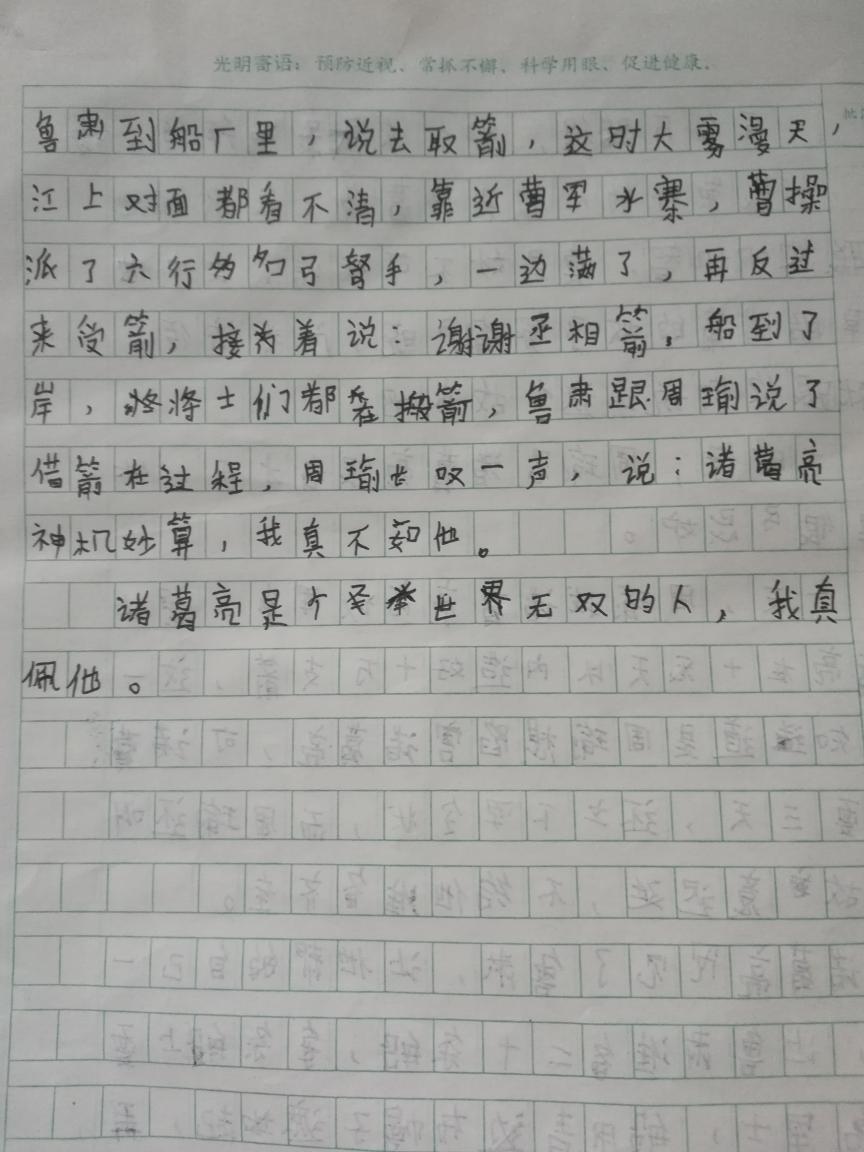 光明寄语：预防近视、常抓不懈、科学用眼、促进健康、
批
鲁肃到船厂里，说去取箭，这时大雾漫天，
江上对面都看不清，靠近曹军水寨，曹操
派了六行的勾弓弩手，一边满了，再反过
来受箭，接为着说：谢谢丞相箭，船到了
岸，将士们都在搬箭，鲁肃跟周瑜说了
借箭在过程，周瑜长叹一声，说：诸葛亮
神机妙算，我真不如他。
诸葛亮是个举世界无双的人，我真
佩他。